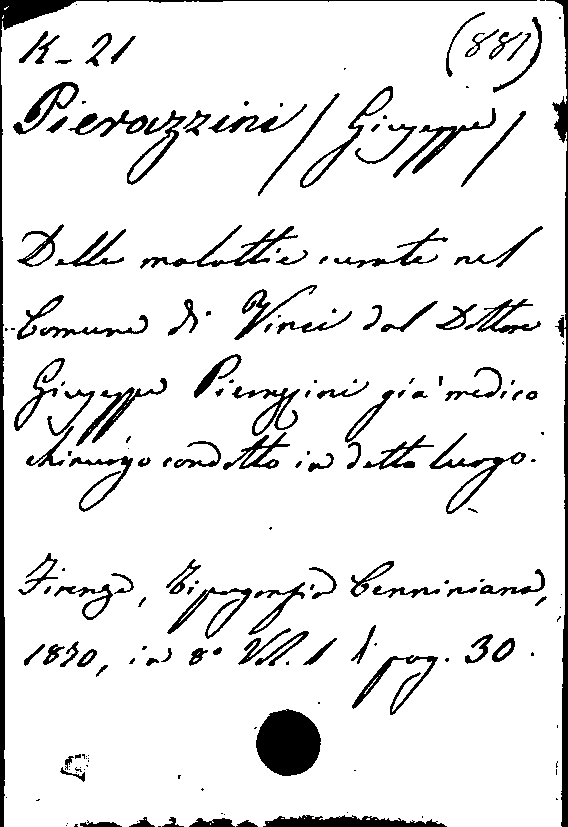 K-21 (881)
Pierazzini / Giuseppe /
Delle malattie curate nel
Comune di Vinci dal Dottore
Giuseppe Pierazzini già medico
chirurgo condotto in detto luogo.
Firenze, Tipografia Cenniniana,
1870, in 8° Vol. 1 di pag. 30.